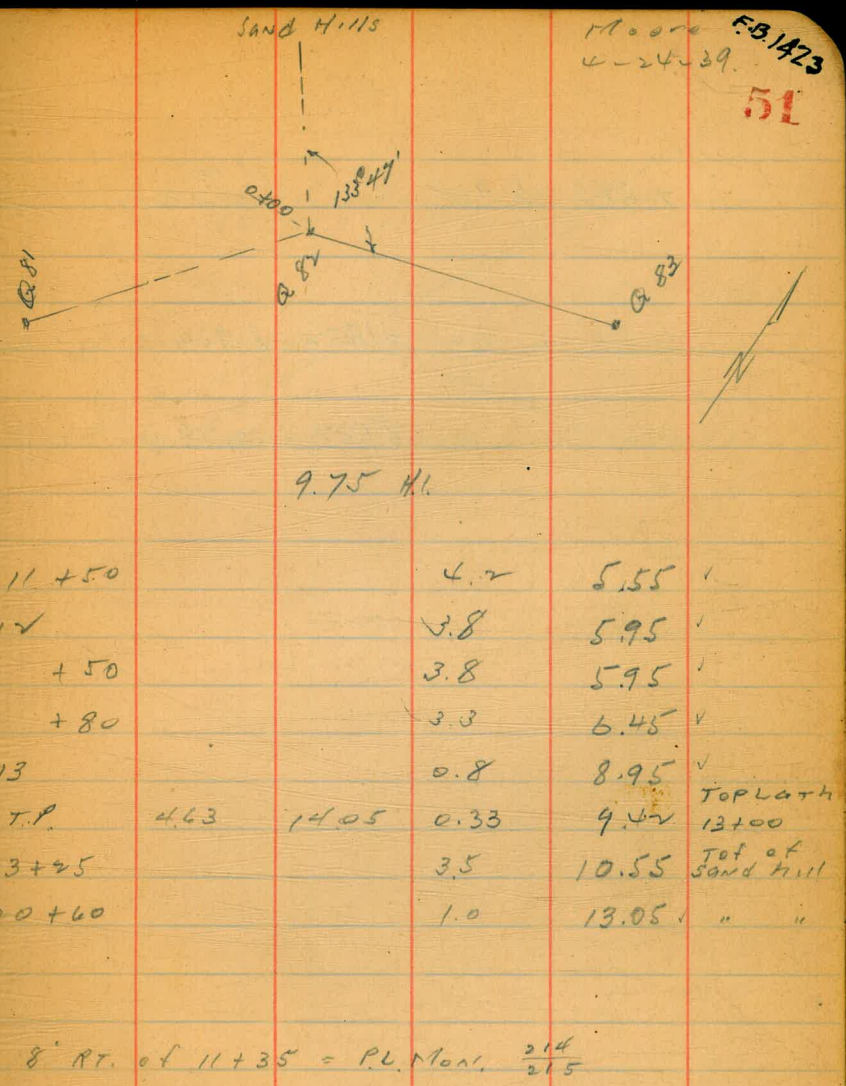 Sand Hills
Moore
F.B. 1423
4-24-39.
51
0+00
133°47'
Q 81
Q 82
Q 83
N
9.75 H.I.
11 +50 4.2 5.55 ✓
12 3.8 5.95 ✓
+50 3.8 5.95 ✓
+80 3.3 6.45 ✓
13 0.8 8.95 ✓
T.P. 4.63 14.05 0.33 9.42 Top Lath 13+00
3+25 3.5 10.55 Top of Sand hill
0+60 1.0 13.05 ✓ " "
8' RT. of 11+35 = P.L. Mon. 214/215